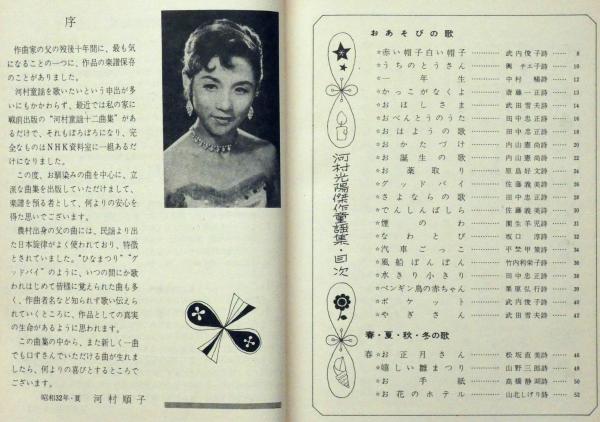 序
作曲家の父の歿後十年間に、最も気
になることの一つに、作品の楽譜保存
のことがありました。
河村童謡を歌いたいという申出が多
いにもかかわらず、最近では私の家に
戦前出版の"河村童謡十二曲集"があ
るだけで、それもぼろぼろになり、完
全なものはNHK資料室に一組あるだ
けになりました。
この度、お馴染みの曲を中心に、立
派な曲集を出版していただけまして、
楽譜を預る者として、何よりの安心を
得た思いでございます。
農村出身の父の曲には、民謡より出
た日本旋律がよく使われており、特徴
とされていました。"ひなまつり""グ
ッドバイ"のように、いつの間にか歌
われはじめて皆様に覚えられた曲も多
く、作曲者名など知られず歌い伝えら
れていくところに、作品としての真実
の生命があるように思われます。
この曲集の中から、また新しく一曲
でも口ずさんでいただける曲が生れま
したら、何よりの喜びとするところで
ございます。
昭和32年・夏 河村順子
河村光陽傑作童謡集・目次
おあそびの歌
☆赤い帽子白い帽子…………武内俊子詩……8
☆うちのとうさん…………輿チエ子詩……10
☆一年生…………中村暢詩……12
☆かっこがなくよ…………斎藤一正詩……13
☆おほしさま…………武田雪夫詩……14
☆おべんとうのうた…………田中忠正詩……16
☆おはようの歌…………田中忠正詩……18
☆おかたづけ…………内山憲尚詩……20
☆お誕生の歌…………内山憲尚詩……22
☆お薬取り…………原島好文詩……24
☆グッドバイ…………佐藤義美詩……26
☆さよならの歌…………田中忠正詩……28
☆でんしんばしら…………佐藤義美詩……30
☆煙のわ…………詩……31
☆なわとび…………坂口淳詩……32
☆汽車ごっこ…………詩……34
☆風船ぽんぽん…………竹内利栄子詩……36
☆水きり小きり…………田中忠正詩……38
☆ペンギン鳥の赤ちゃん…………栗原弘行詩……39
☆ポケット…………武内俊子詩……40
☆やぎさん…………武田雪夫詩……42
春・夏・秋・冬の歌
春☆お正月さん…………松坂直美詩……46
☆嬉しい雛まつり…………山野三郎詩……48
☆お手紙…………高橋静湖詩……50
☆お花のホテル…………山北しげり詩……52